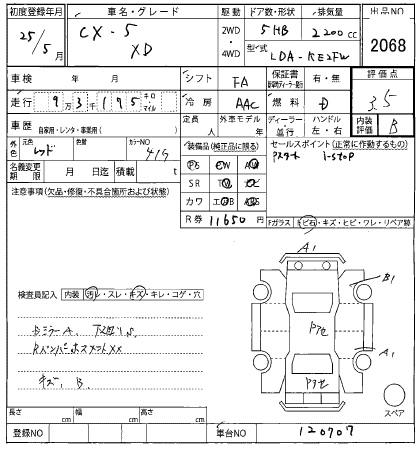 初度登録年月 車名・グレード 駆動 ドア数・形状 排気量 出品NO
25/5月 CX-5 XD 2WD・4WD 5HB 2200cc 2068
型式 LDA-KE2FW
車検 年 月 シフト FA 保証書 有・無 評価点
走行 9万3千175 キロ・マイル 冷房 AAC 燃料 D 3.5
車歴 自家用・レンタ・事業用( ) 定員 人 外車モデル 年 ディーラー・並行 ハンドル 左・右 内装評価 B
外色 元色 レッド 色替 カラーNO 41V
装備品(純正品に限る) セールスポイント(正常に作動するもの)
PS PW AW
i-stop
名義変更期限 月 日迄 積載 t
SR TV
注意事項(欠品・修復・不具合箇所および状態)
カワ エアB ABS
R券 11650円
Fガラス(ビ石・キズ・ヒビ・ワレ・リペア跡)
A1
B1
検査員記入 内装(汚レ・スレ・キズ・キレ・コゲ・穴)
Pアセ
DミラーA
A1
Pアセ
キズ、B
スペア
長さ cm 幅 cm 高さ cm
登録NO 車台NO 120707